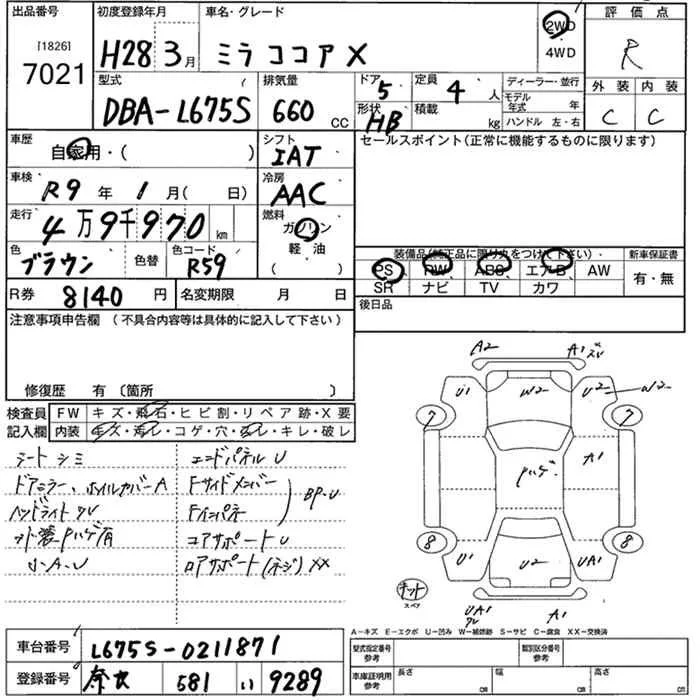 出品番号 初度登録年月 車名・グレード 2WD 評価点
[1826] 7021 H28 3月 ミラ ココア X 4WD R
型式 排気量 ドア 定員 ディーラー・並行 外装 内装
DBA-L675S 660 CC 5 4人 モデル年式 年 C C
形状 HB 積載 kg ハンドル 左・右
車歴 自家用・( ) シフト IAT セールスポイント(正常に機能するものに限ります)
車検 R9年 1月( 日) 冷房 AAC
走行 4万9千970km 燃料 ガソリン
色 ブラウン 色替 色コード R59 軽油 ( )
装備品(純正品に限り丸をつけて下さい) 新車保証書
PS PW ABS エアB AW 有・無
SR ナビ TV カワ
R券 8140円 名変期限 月 日 後日品
注意事項申告欄 (不具合内容等は具体的に記入して下さい)
修復歴 有 〔箇所 〕
検査員 FW キズ・飛石・ヒビ割・リペア跡・X要
記入欄 内装 キズ・汚レ・コゲ・穴・スレ・キレ・破レ
シート シミ エンドパネル U
ドアミラー、ホイルカバーA Fサイドメンバー
BP.U
ヘッドライト クレ Fインパネ
外装ハゲ有 コアサポート U
小A.U ロアサポート(ネジ)XX
A2 A1 ズレ
U1 W2 U2 W2
7 7
ハゲ A1
8 8
U1 U2 UA1
キット
スペア UA1 A1
A-キズ E-エクボ U-凹み W-補修跡 S-サビ C-腐食 XX-交換済
車台番号 L675S-0211871 型式指定番号 参考 類別区分番号 参考
登録番号 奈良 581 い 9289 車庫証明用 参考 長さ cm 幅 cm 高さ cm